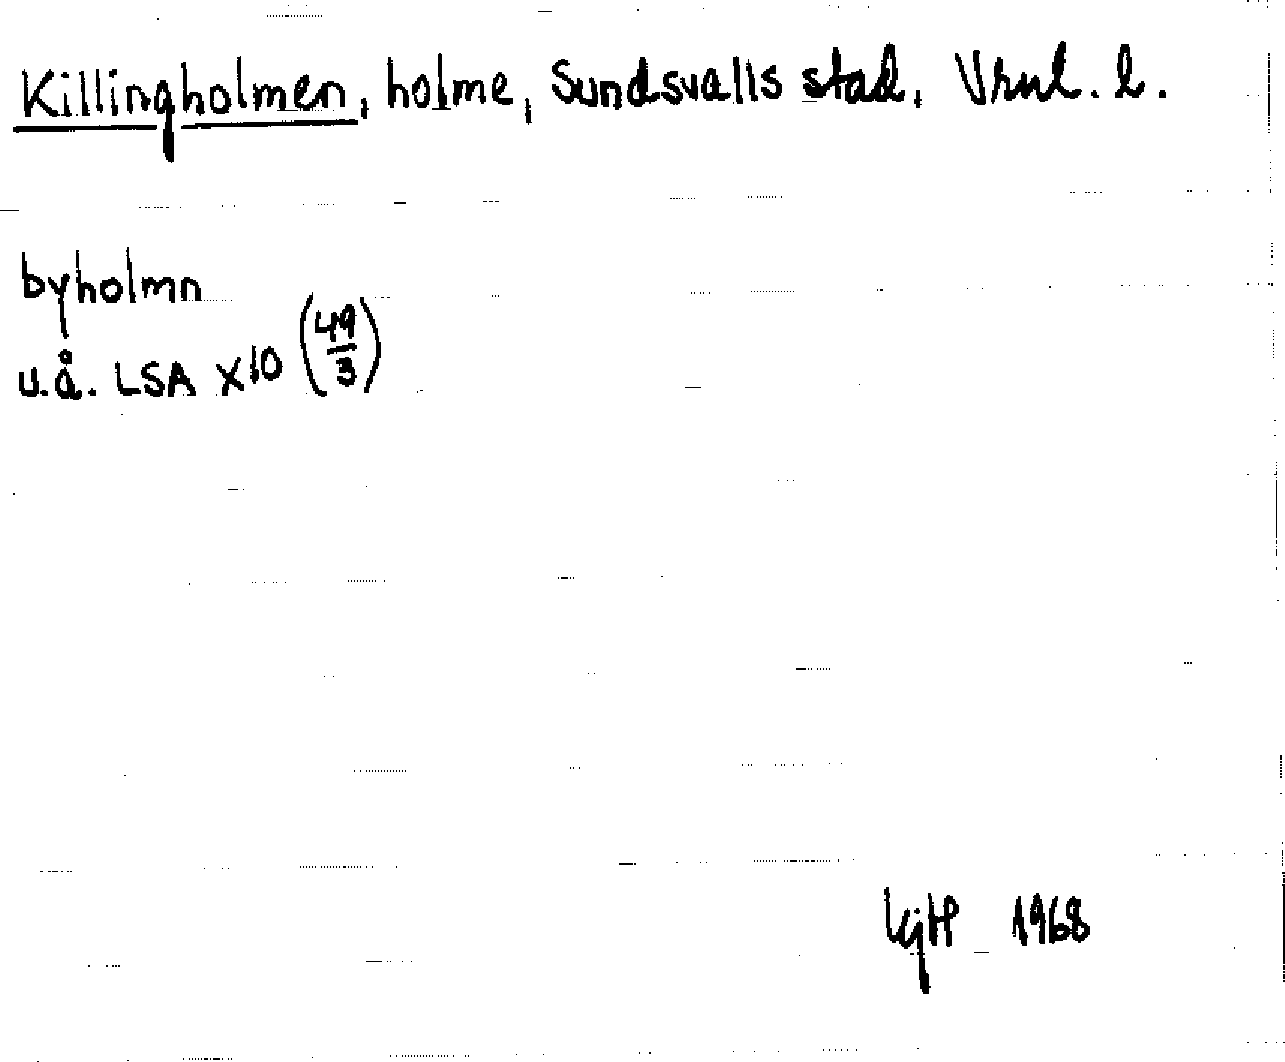 Killingholmen, holme, Sundsvalls stad, Vrnl. l.
byholmn
u.å. LSA X10 (49/3)
1968